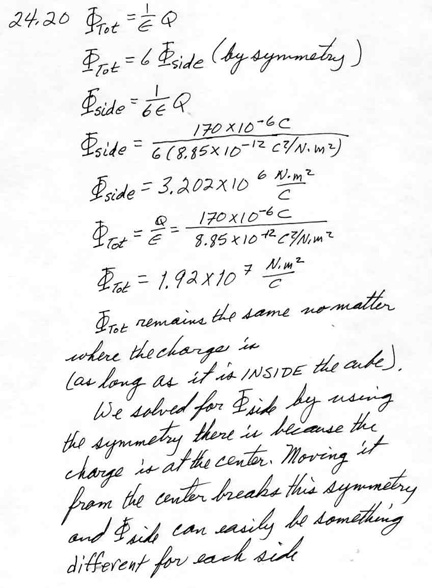 24.20 Φ_Tot = 1/ε Q
Φ_Tot = 6 Φ_side (by symmetry)
Φ_side = 1/6ε Q
Φ_side = 170×10^-6 C / 6(8.85×10^-12 C²/N·m²)
Φ_side = 3.202×10^6 N·m²/C
Φ_Tot = Q/ε = 170×10^-6 C / 8.85×10^-12 C²/N·m²
Φ_Tot = 1.92×10^7 N·m²/C
Φ_Tot remains the same no matter
where the charge is
(as long as it is INSIDE the cube).
We solved for Φ_side by using
the symmetry there is because the
charge is at the center. Moving it
from the center breaks this symmetry
and Φ_side can easily be something
different for each side